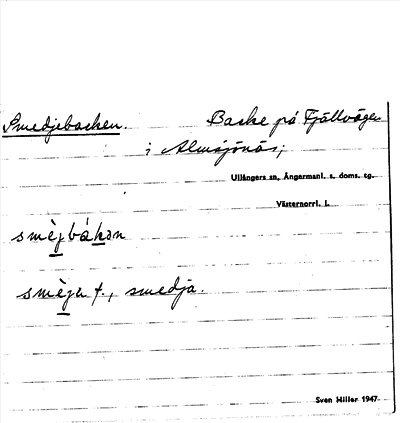 Smedjebacken. Backe på Fjällvägen
i Almsjönäs;
Ullångers sn, Ångermanl. s. doms. tg.
Västernorrl. l.
smèjbákan
smèja f., smedja.
Sven Hiller 1947.